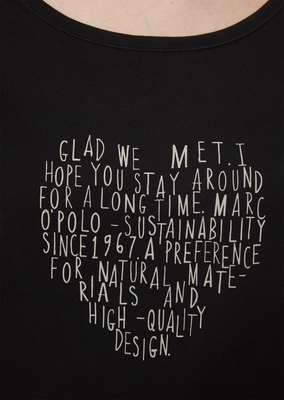 GLAD WE MET. I
HOPE YOU STAY AROUND
FOR A LONG TIME. MARC
O'POLO - SUSTAINABILITY
SINCE 1967. A PREFERENCE
FOR NATURAL MATE-
RIALS AND
HIGH -QUALITY
DESIGN.